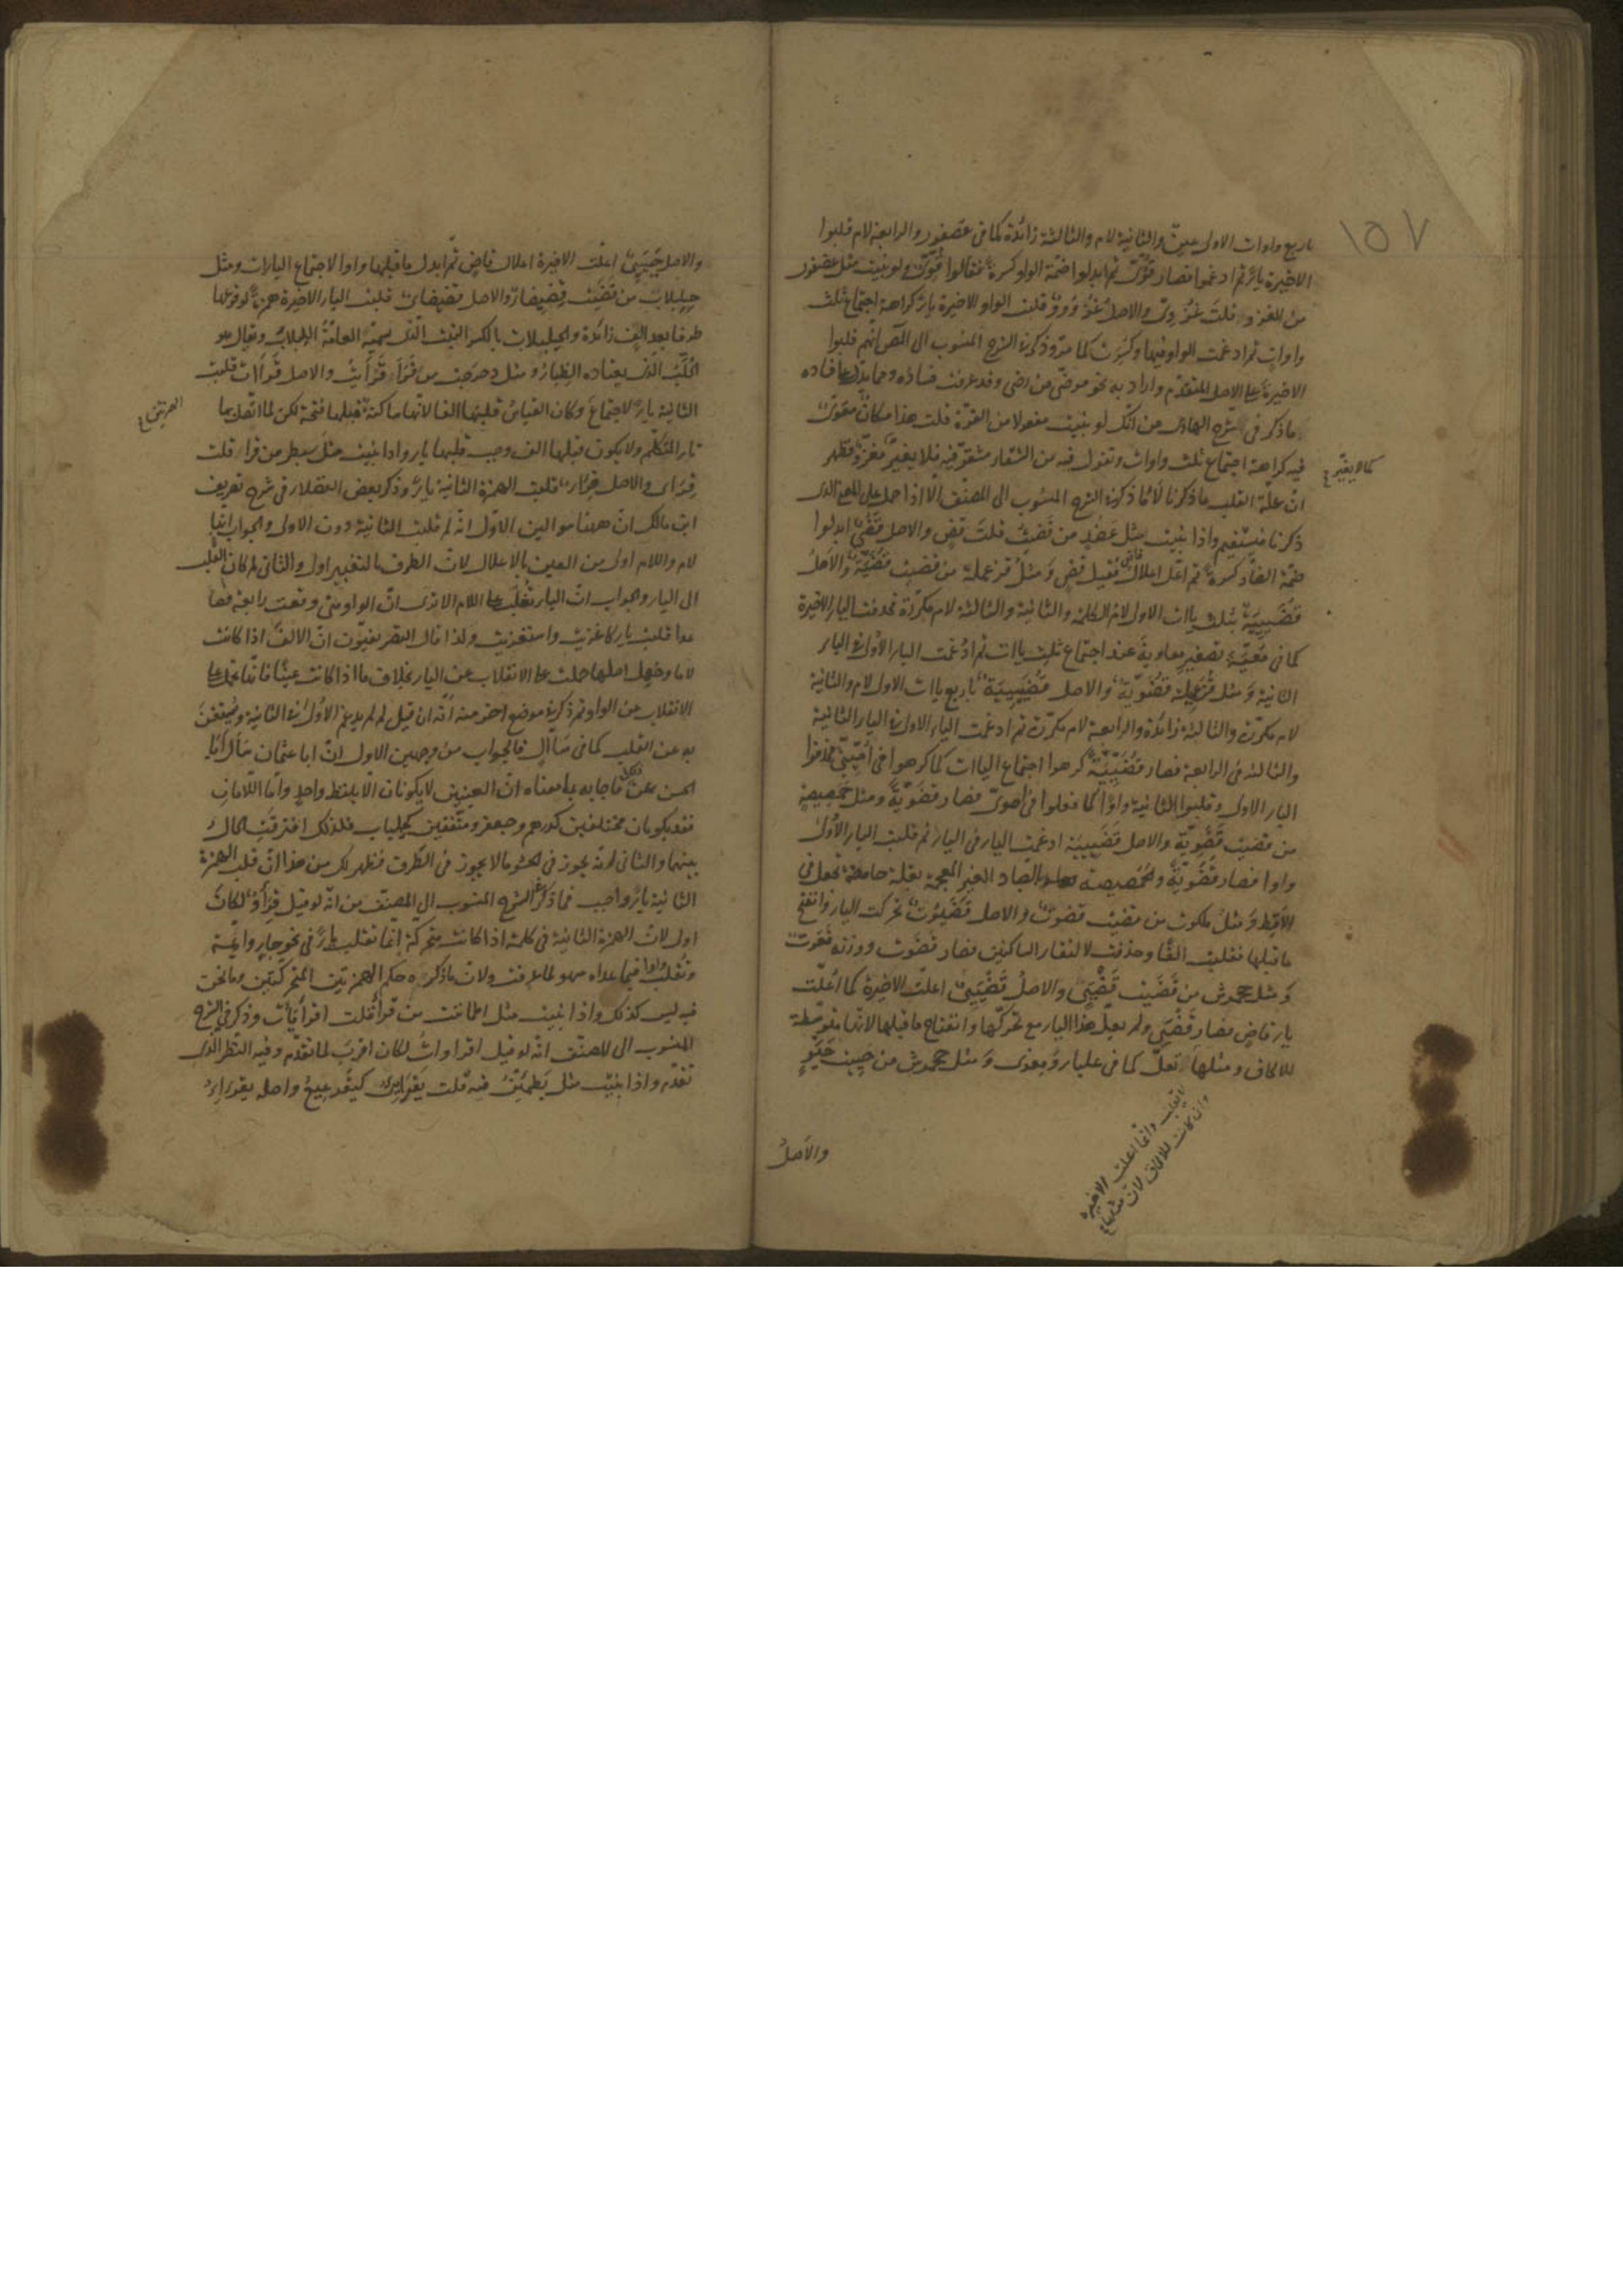 ١٥٧
باربع واوات الاولى عين والثانية لام والثالثة زائدة كما في عصفور والرابعة لام قلبوا
الاخيرة ياءً ثم ادغموا فصار قُوُّىٌّ ثم ابدلوا ضمة الواو كسرة فقالوا قُوِّىٌّ ولو بنيت مثل عصفور
من الغزو قلتَ غُزْوِىٌّ والاصل غُزْوُووٌ قلبت الواو الاخيرة ياءً كراهة اجتماع ثلث
واوات ثم ادغمت الواو فيها وكسرت لما مرّ وذكر في الشرح المنسوب الى المص انهم قلبوا
الاخيرة على الاصل المتقدم واراد به نحو مرضىّ من رضى وقد عرفت فساده ومما يدل على فساده
ما ذكر في شرح الهادى من انك لو بنيت مفعولا من القوة قلت هذا مكان مقوىّ
فيه كراهة اجتماع ثلث واوات وتقول فيه من الشقاء مشقوّ فيه فلا يغيّر مغزوّ فظهر
كما لا يغيّر
ان علة القلب ما ذكرنا لا ما ذكر في الشرح المنسوب الى المصنف الا اذا حمل على المعنى الذى
ذكرنا فيستقيم واذا بنيت مثل عَضُدٍ من قَضَيْتُ قلتَ قضٍ والاصل قَضُىٌ ابدلوا
ضمة الضاد كسرة ثم اعلّ اعلال قاضٍ فقيل قضٍ ومثلُ قذعملة من قضيت قُضَيَّةٌ والاصل
قُضَيِّيَةٌ بثلث ياات الاولى لام الكلمة والثانية والثالثة لام مكررة فحذفت الياء الاخيرة
كما في مُعَيَّةٍ تصغير معاوية عند اجتماع ثلث ياات ثم ادغمت الياء الاولى في الياء
الثانية ومثل قُذَعْمِيلة قُضَوِيَّة والاصل قُضَيْيِيَّة باربع ياات الاولى لام والثانية
لام مكررة والثالثة زائدة والرابعة لام مكررة ثم ادغمت الياء الاولى في الياء الثانية
والثالثة في الرابعة فصار قُضَيِّيَّة كرهوا اجتماع الياات كما كرهوا في اُمَيِّىّ فحذفوا
الياء الاولى وقلبوا الثانية واوًا كما فعلوا في اُموىّ فصار قضويّة ومثل حَمَصِيصةٍ
من قضيت قَضَوِيّة والاصل قَضَيِيَية ادغمت الياء في الياء ثم قلبت الياء الاولى
واوا فصار قَضَوِيَّةً والحَمَصيصة بالصاد الغير المعجمة بقلة حامضة تجعل في
الاقط ومثلُ ملكوت من قضيت قضوتٌ والاصل قَضَيُوتٌ تحركت الياء وانفتح
ما قبلها فقلبت الفًا وحذفت لالتقاء الساكنين فصار قضوت ووزنه فَعَوتٌ
ومثل جحمرش من قَضَيت قَضْيَىٍ والاصلُ قَضْيَيِىٌ اعلّت الاخيرة كما اُعلّت
ياء قاضٍ فصار قَضْيَىٍ ولم يعلّ هذا الياء مع تحركها وانفتاح ما قبلها لانها متوسطة
للالحاق ومثلها تعلّ كما في علباء ومعزى ومثل جحمرش من حييت حَيَّوٍ
لا يقلب وانما اعلت الاخيرة
وان كانت للالحاق لان
والاصلُ
والاصل حَيَّيِىٌ اعلّت الاخيرة اعلال قاضٍ ثم ابدل ما قبلها واوا لاجتماع الياءات ومثل
حِلِبْلابٍ من قَضَيْتُ قِضِيضاءٌ والاصل قضيضاىٌ قلبت الياء الاخيرة همزة لوقوعها
طرفا بعد الف زائدة والحلبلاب بالكسر النبت الذى يسمّيه العامّة اللبلاب ويقال هو
الحُلَّبُ الذى يعتاده الظباء ومثل دحرجت من قرأ قَرْأَيْتُ والاصل قَرْأَأْتُ قلبت
الثانية ياءً لاجتماع وكان القياس قلبها الفا لانها ساكنة قبلها فتحة لكن لما اتصل بها
الهمزتين
تاء المتكلم ولا يكون قبلها الف وجب قلبها ياء واذا بنيت مثل سبطر من قرأ قلت
قِرَأْىٌ والاصل قِرَأْءٌ قلبت الهمزة الثانية ياءً وذكر بعض الفضلاء في شرح تعريف
ابن مالك ان ههنا سوالين الاوّل انه لم قلبت الثانية دون الاولى والجواب انها
لام واللام اولى من العين بالاعلال لان الطرف بالتغيير اولى والثانى لم كان القلب
الى الياء والجواب انّ الياء تغلب على اللام الا ترى ان الواو متى وقعت رابعة فصا
عدا قلبت ياء كاغزيت واستغزيت ولذا قال التصريفيّون انّ الالف اذا كانت
لاما وجهل اصلها حملت على الانقلاب عن الياء بخلاف ما اذا كانت عينًا فانها تحمل على
الانقلاب عن الواو ثم ذكر في موضع آخر منه انه ان قيل لم لم يدغم الاولى في الثانية ويستغنَ
به عن القلب كما في سآّلٍ فالجواب من وجهين الاول انّ ابا عثمان سَأل ابا
الحسن عن ذلك فاجابه بما معناه انّ العينين لا يكونان الا بلفظ واحد وامّا اللامان
فقد يكونان مختلفين كدرهم وجعفر ومتّفقين كجلباب فلذلك افترقت الحال
بينهما والثانى انه يجوز في الحشو ما لا يجوز في الطرف فظهر لك من هذا انّ قلب الهمزة
الثانية ياءً واجب فما ذكر في الشرح المنسوب الى المصنف من انه لو قيل قِرَأْوٌ لكان
اولى لان الهمزة الثانية في كلمة اذا كانت متحركة انما تقلب ياءً في نحو جاءٍ وايمّة
وتقلب واوا فيما عداه سهو لما عرفت ولان ما ذكره حكم الهمزتين المتحركتين وما نحن
فيه ليس كذلك واذا بنيت مثل اطمأننت من قرأ قلت اقرأيأت وذكر في الشرح
المنسوب الى المصنّف انه لو قيل اقرأوأت لكان اقرب لما تقدم وفيه النظر الذى
تقدم واذا بنيت مثل يَطمئنّ منه قلت يَقْرَئِىءُ كيقرعيع واصله يقرءِءُ